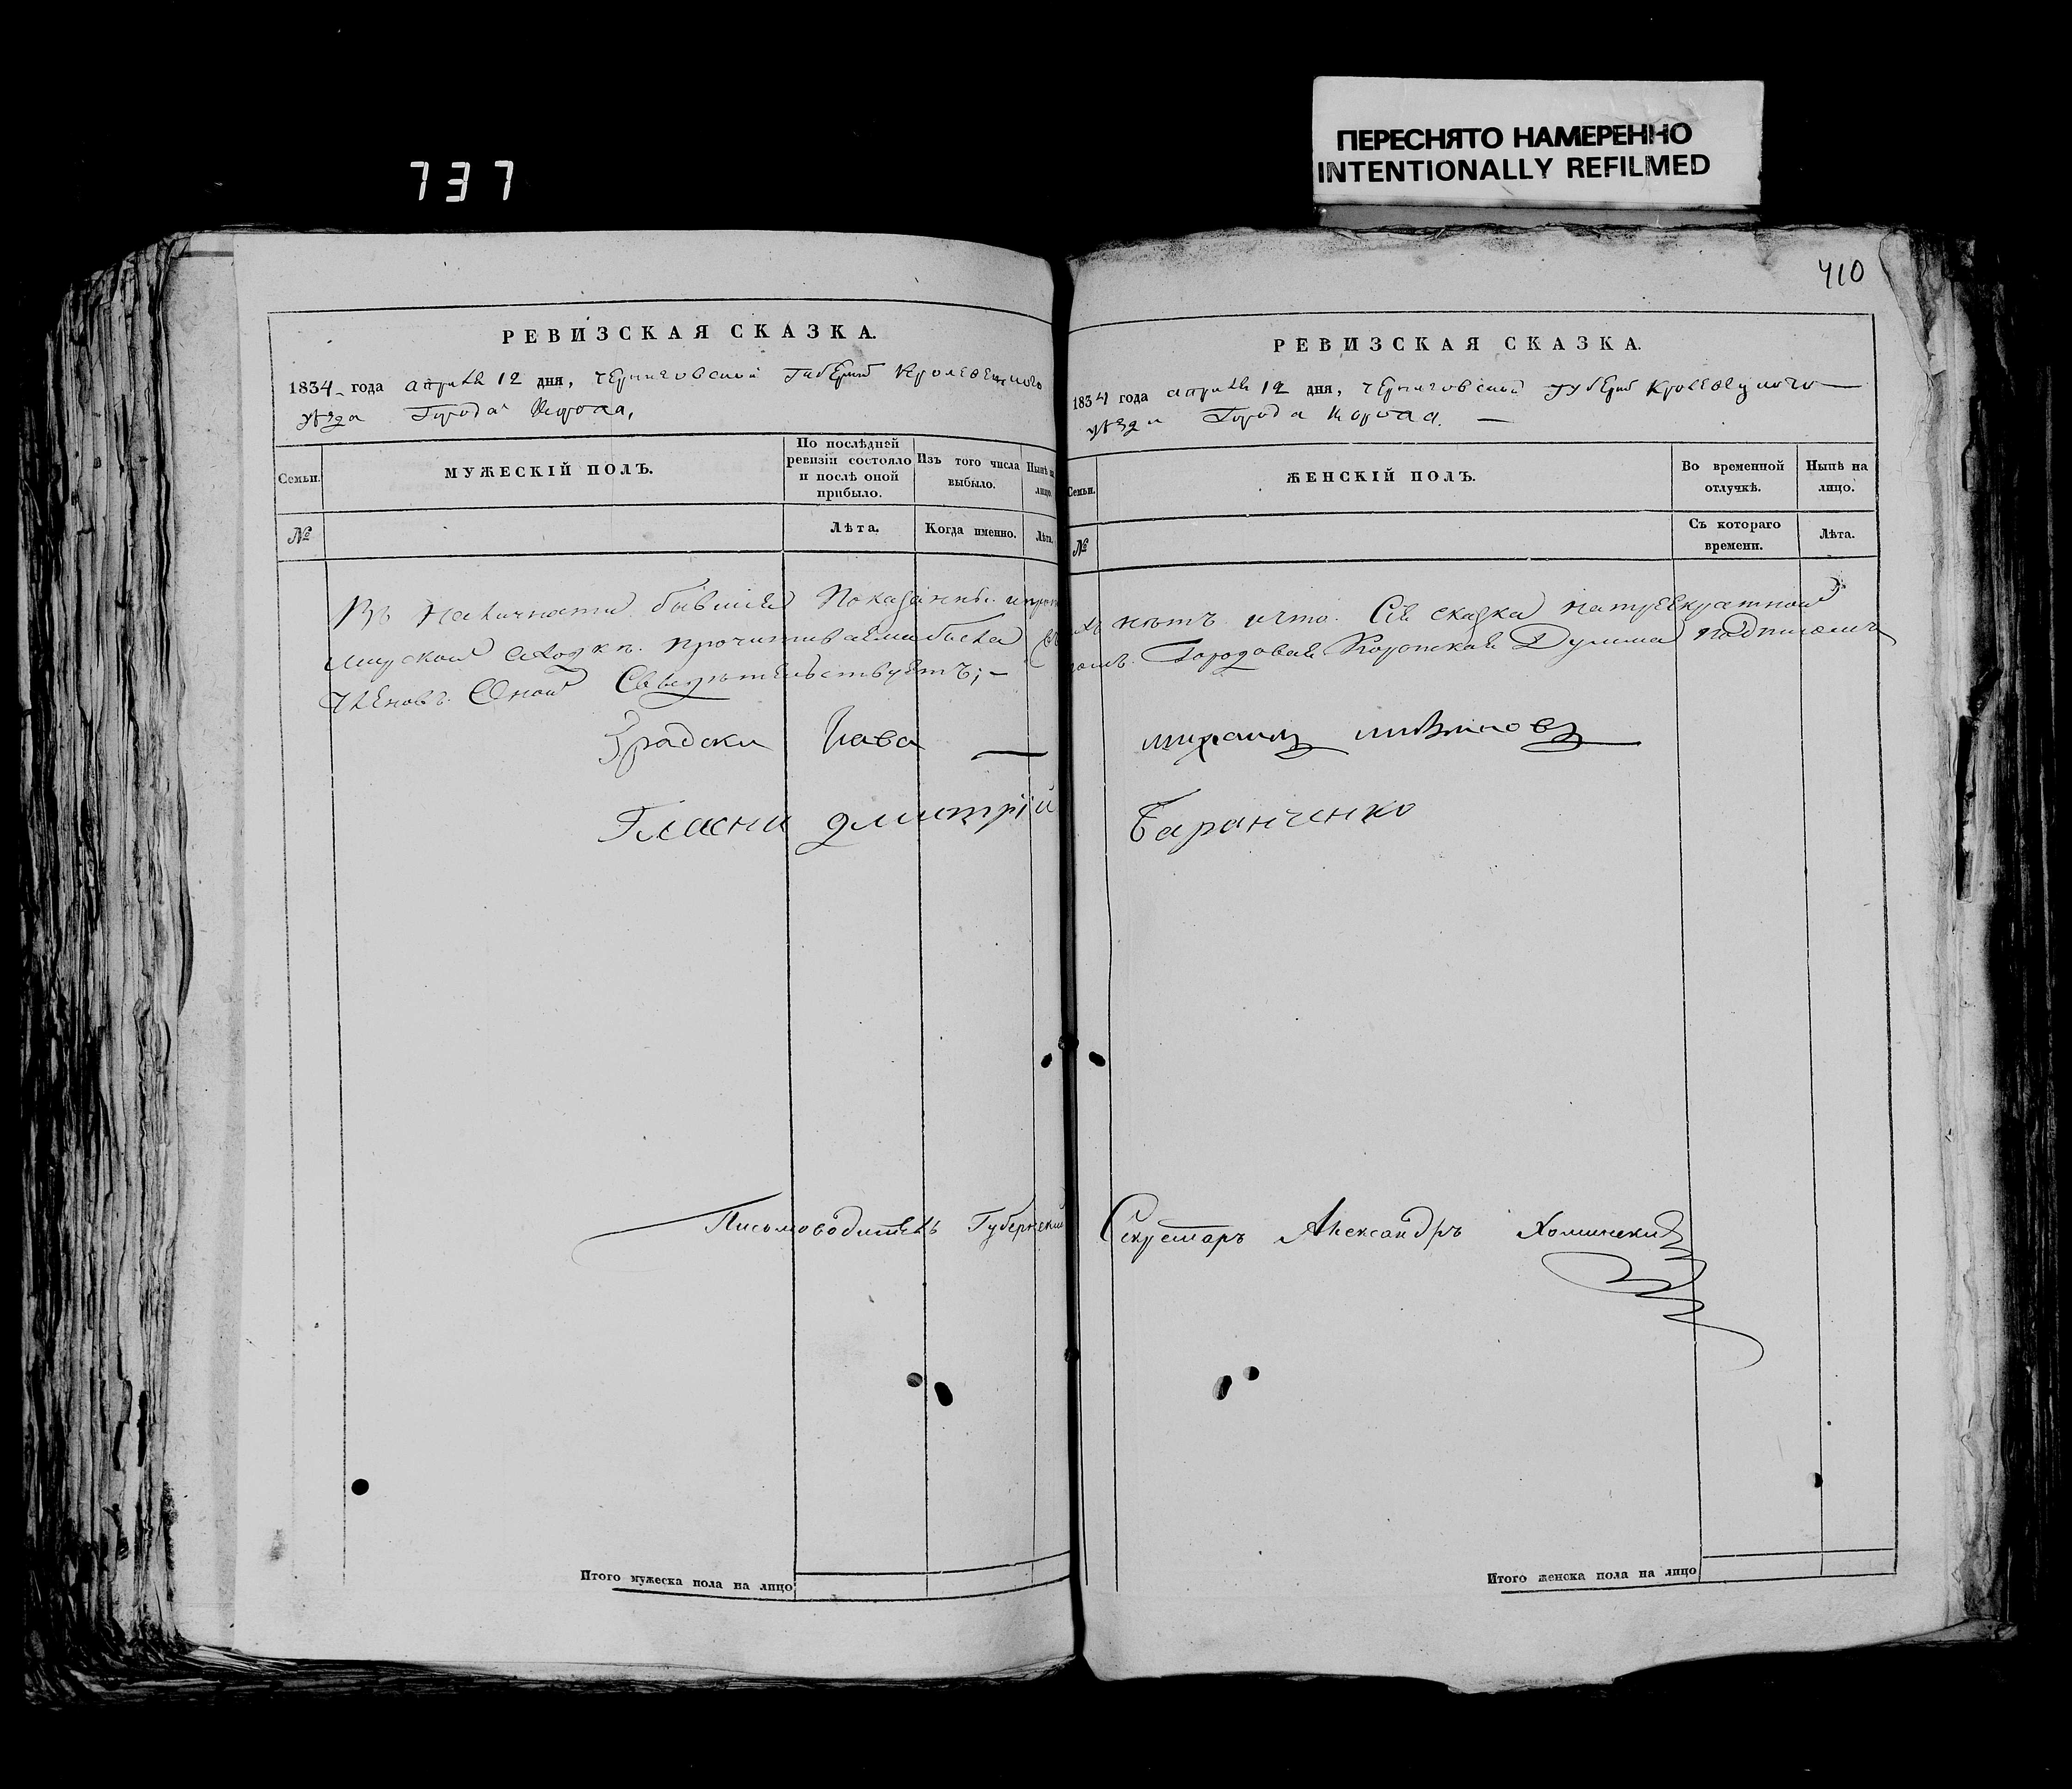 737
ПЕРЕСНЯТО НАМЕРЕННО
INTENTIONALLY REFILMED
410
РЕВИЗСКАЯ СКАЗКА.
1834 года апреля 12 дня, черниговской губерніи Кролевецкого
уѣзда Города Коропа,
Семьи.
МУЖЕСКІЙ ПОЛЪ.
По послѣдней ревизіи состояло и послѣ оной прибыло.
Изъ того числа выбыло.
Нынѣ на лицо.
№
Лѣта.
Когда именно.
Лѣта.
Въ наличности бывшія показанны
мирской сходкѣ прочитиваема была
Членовъ Оной Свидѣтельствуетъ;
Градски Глава
Гласни дмитрій
Письмоводитель Губернскій
Итого мужеска пола на лицо
РЕВИЗСКАЯ СКАЗКА.
1834 года апреля 12 дня, черниговской губерніи Кролевецкого
уѣзда Города Коропа.
Семьи.
ЖЕНСКІЙ ПОЛЪ.
Во временной отлучкѣ.
Нынѣ на лицо.
№
Съ котораго времени.
Лѣта.
нѣтъ и что Сія сказка на троекратной
Городовая Коропская Дума подписомъ
михаилъ
Баранченко
Секретарь Александръ Хоминскій
Итого женска пола на лицо